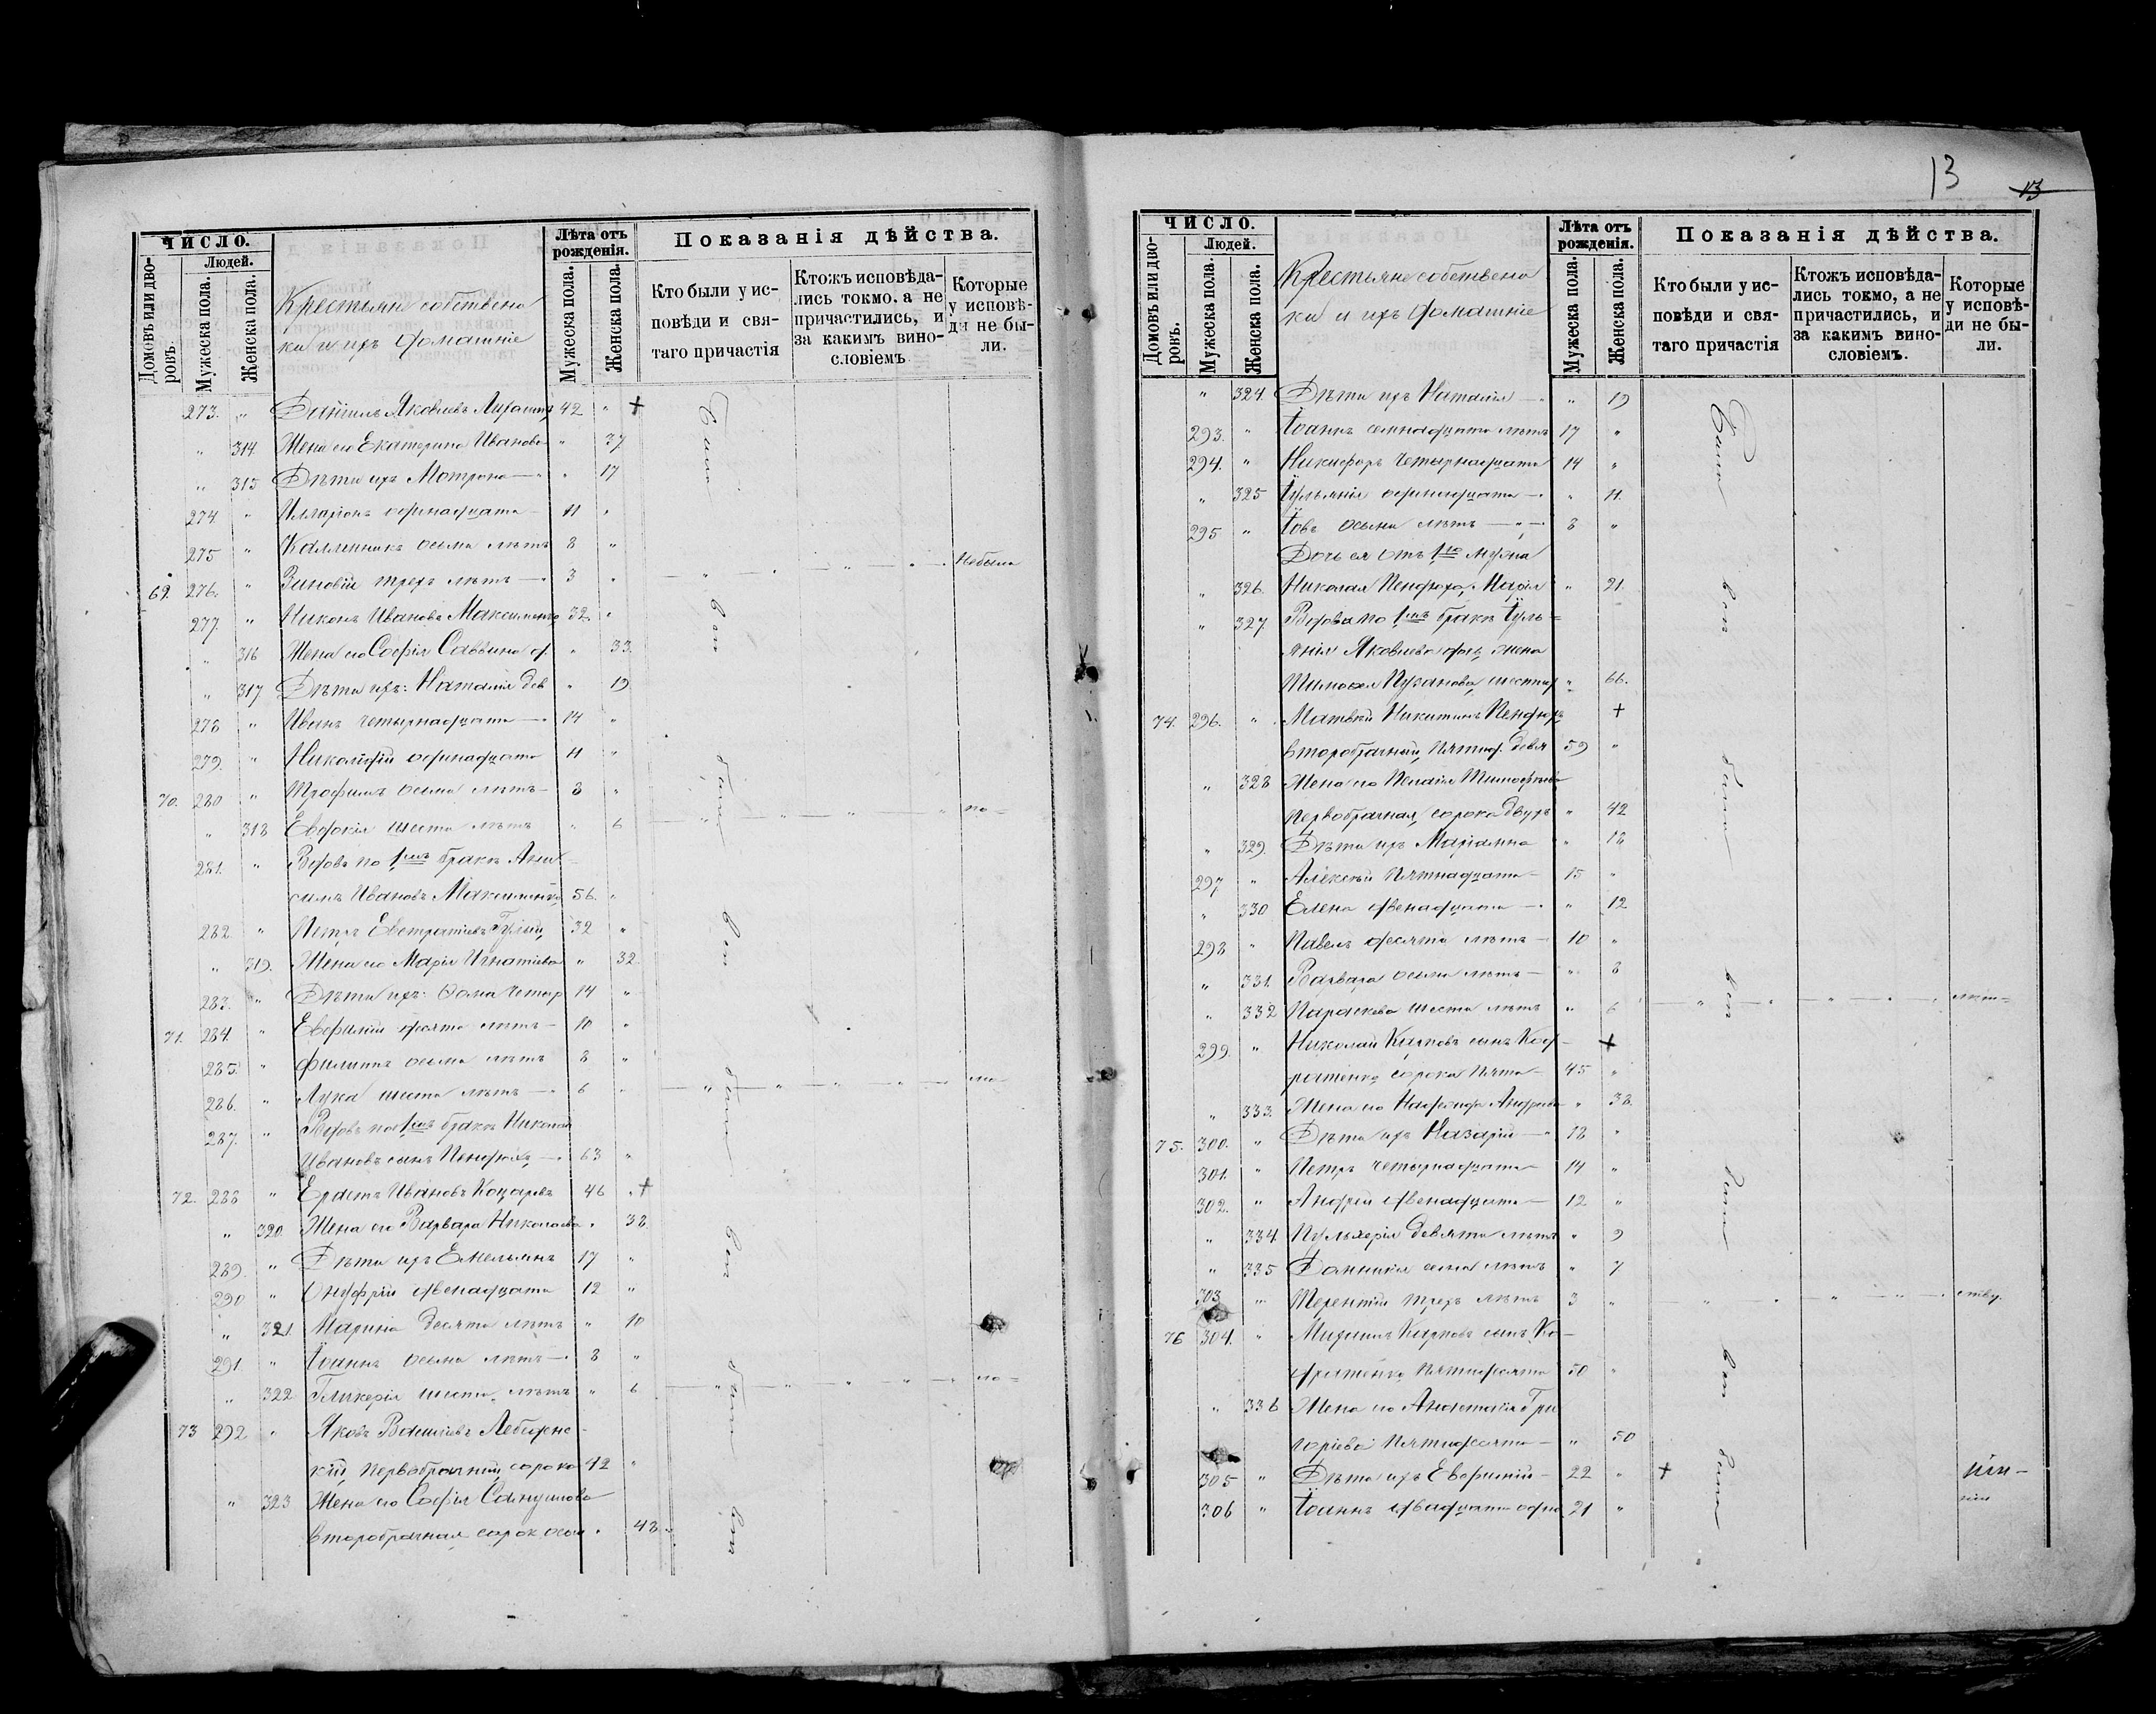 ЧИСЛО.
Домовъ или дво-
ровъ.
Людей.
Мужеска пола.
Женска пола.
Крестьяне собствена
ки и ихъ домашніе
Лѣта отъ
рожденія.
Мужеска пола.
Женска пола.
Показанія дѣйства.
Кто были у ис-
повѣди и свя-
таго причастія
Ктожъ исповѣда-
лись токмо, а не
причастились, и
за какимъ вино-
словіемъ
Которые
у исповѣ-
ди не бы-
ли.
273. " Даніилъ Яковлевъ 42 " +
" 314 Жена его Екатерина Иванова " 37
" 315 Дѣти ихъ Матрона " 17
274 " Илларіонъ одинадцати 11 "
275 " Каллиникъ осьми лѣтъ 8 "
69. 276. " Зиновій трехъ лѣтъ 3 " небыли
277. " Никонъ Ивановъ Максименко 32. "
" 316 Жена его Софія Саввина " 33.
" 317 Дѣти ихъ: Наталія дев " 19
278 " Иванъ четырнадцати 14 "
279. " Николай одинадцати 11 "
70. 280 " Трофимъ осьми лѣтъ 8 " по-
" 318 Евдокія шести лѣтъ " 6
281. " Вдовъ по 1мъ бракѣ Ани
симъ Ивановъ Максименко 56. "
282. " Петръ Евстратіевъ 32 "
" 319. Жена его Марія Игнатіева " 32
283. " Дѣти ихъ: Ѳома четыр 14 "
71. 284. " Евфимій десяти лѣтъ 10 "
285. " Филиппъ осьми лѣтъ 8 "
286. " Лука шести лѣтъ 6 "
287. " Вдовъ по 1мъ бракѣ Николай
Ивановъ сынъ Пендюхъ 63 "
72. 288 " Ерастъ Ивановъ Козаревъ 46 " +
" 320. Жена его Варвара Николаева " 38
289. " Дѣти ихъ Емельянъ 17 "
290 " Онуфрій двенадцати 12 "
" 321. Марина десяти лѣтъ " 10
291. " Іоаннъ осьми лѣтъ 8 "
" 322 Гликерія шести лѣтъ " 6 по-
73 292 " Яковъ Лебедине
кій первобрачный сорока 42 "
" 323 Жена его Софія
второбрачная сорок осьм " 48
Были
вси
были
вси
были
вси
были
вси
13
13
ЧИСЛО.
Домовъ или дво-
ровъ.
Людей.
Мужеска пола.
Женска пола.
Крестьяне собствена
ки и ихъ домашніе
Лѣта отъ
рожденія.
Мужеска пола.
Женска пола.
Показанія дѣйства.
Кто были у ис-
повѣди и свя-
таго причастія
Ктожъ исповѣда-
лись токмо, а не
причастились, и
за какимъ вино-
словіемъ.
Которые
у исповѣ-
ди не бы-
ли.
" 324. Дѣти ихъ Наталія " 19
293. " Іоаннъ семнадцати лѣтъ 17 "
294. " Никифоръ четырнадцати 14 "
" 325 Іульянія одинадцати " 11.
295 " Іовъ осьми лѣтъ 8 "
Дочь ея отъ 1го мужа
" 326. Николая Пендюха, Марія " 21.
" 327 Вдова по 1мъ бракѣ Іуль=
янія Яковлева жена
Тимоѳея Пузанова, шестид " 66.
74. 296. " Матвѣй Никитинъ Пендюхъ +
второбрачный, пятид. девя 59 "
" 328 Жена его Пелагія Тимофѣева
первобрачная, сорока двухъ " 42
" 329. Дѣти ихъ Маріамна " 18
297 " Алексѣй пятнадцати 15 "
" 330 Елена двенадцати " 12
298 " Павелъ десяти лѣтъ 10 "
" 331. Варвара осьми лѣтъ " 8
" 332 Параскева шести лѣтъ " 6
299. " Николай Карповъ сынъ Код-
ратенко, сорока пяти 45 "
" 333. Жена его Андреева " 38.
75. 300. " Дѣти ихъ Назарій 18 "
301. " Петръ четырнадцати 14 "
302. " Андрей двенадцати 12 "
" 334 Пульхерія девяти лѣтъ " 9
" 335 Домникія семи лѣтъ " 7
303 " Терентій трехъ лѣтъ 3 " ству.
76 304. " Карповъ сынъ Ко-
дратенко, пятидесяти 50 "
" 336 Жена его Анастасія Гри
горіева пятидесяти " 50
305 " Дѣти ихъ Евфимій 22 " +
306 " Іоаннъ двадцати одно 21 "
Были
вси
были
вси
были
вси
были